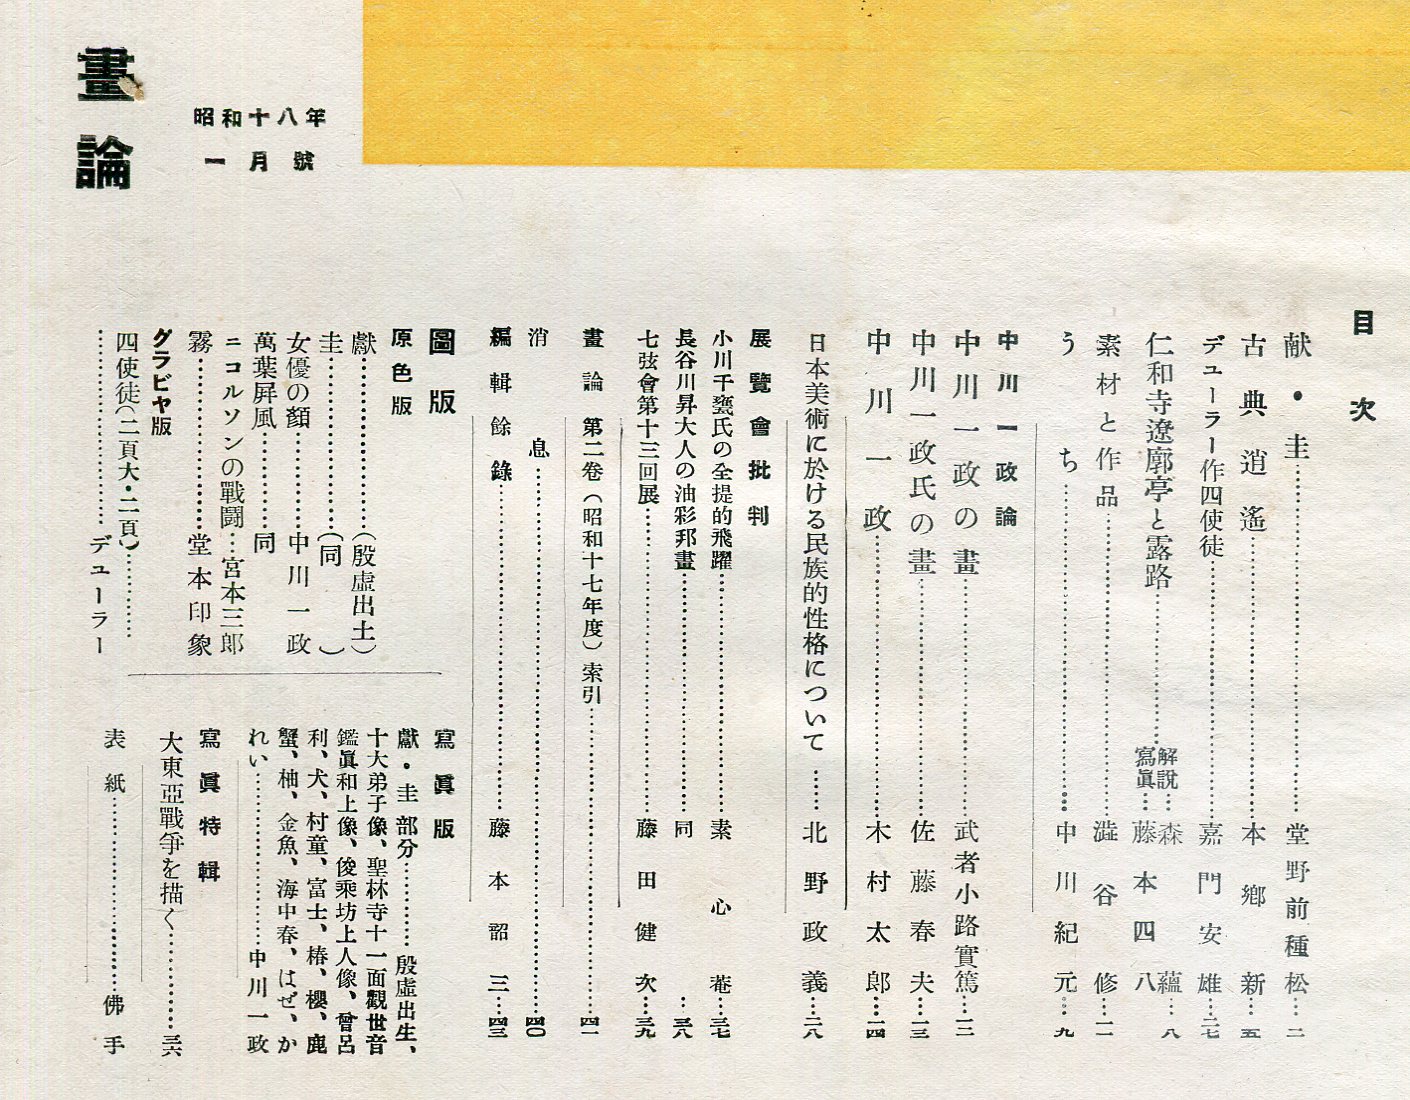 目次
献・圭……堂野前種松…二
古典逍遙……本鄕新…五
デューラー作四使徒……嘉門安雄…二七
仁和寺遼廓亭と露路……解說…森蘊…八
寫眞…藤本四八
素材と作品……澁谷修…一一
うち……中川紀元…九
中川一政論
中川一政の畫……武者小路實篤…一二
中川一政氏の畫……佐藤春夫…一三
中川一政……木村太郎…一四
日本美術に於ける民族的性格について……北野政義…二八
展覽會批判
小川千甕氏の全提的飛躍……素心菴…三七
長谷川昇大人の油彩邦畫……同…三八
七弦會第十三回展……藤田健次…三九
畫論 第二卷(昭和十七年度)索引……四一
消息……四〇
編輯餘錄……藤本韶三…四三
圖版
原色版
獻……(殷虛出土)
圭……(同)
女優の顏……中川一政
萬葉屛風……同
ニコルソンの戰鬪…宮本三郎
霧……堂本印象
グラビヤ版
四使徒(二頁大・二頁)……
……デューラー
寫眞版
獻・圭部分……殷虛出生、
十大弟子像、聖林寺十一面觀世音
鑑眞和上像、俊乘坊上人像、曾呂
利、犬、村童、富士、椿、櫻、鹿
蟹、柚、金魚、海中春、はぜ、か
れい……中川一政
寫眞特輯
大東亞戰爭を描く……三六
表紙……佛手
昭和十八年
一月號
畫論